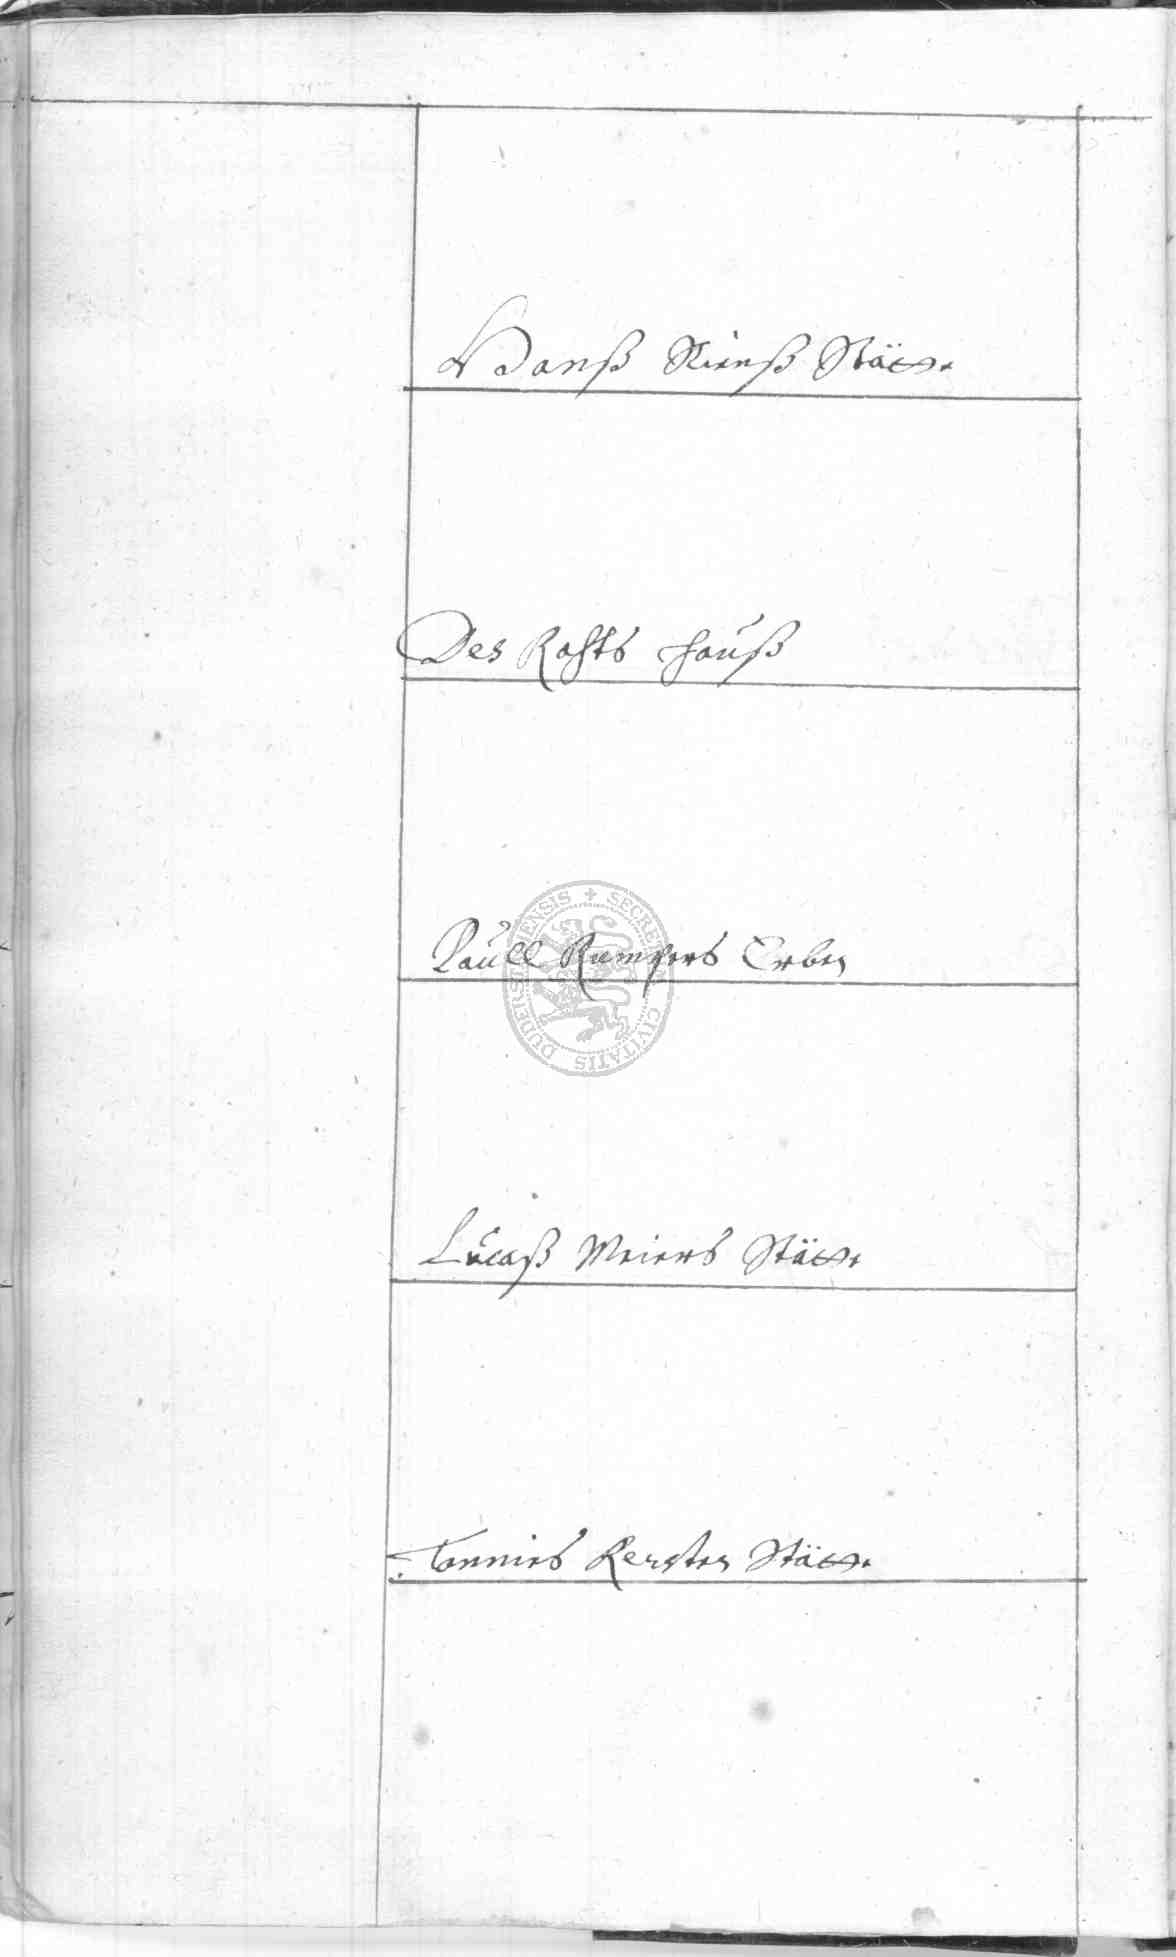 Hanß Stätte
Des Rahts Hauß
SECRETUM CIVITATIS DUDERSTADIENSIS
Paull Rumpers Erben
Lucaß Meiers Stätte
Tönnies Kersten Stätte